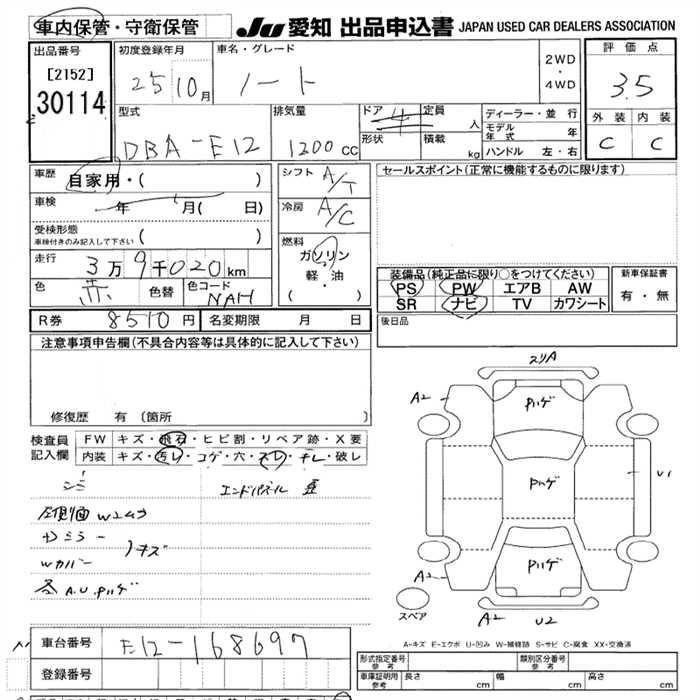 車内保管・守衛保管
JU 愛知 出品申込書 JAPAN USED CAR DEALERS ASSOCIATION
出品番号
[2152]
30114
初度登録年月
25 10月
車名・グレード
ノート
2WD
・
4WD
評価点
3.5
外装 内装
C C
型式
DBA-E12
排気量
1200cc
ドア 4
形状
定員 人
積載 kg
ディーラー・並行
モデル年式 年
ハンドル 左・右
車歴 自家用・( )
車検 年 月( 日)
受検形態
車検付きのみ記入して下さい ( )
走行 3万9千020km
色 赤 色替 色コード NAH
シフト A/T
冷房 A/C
燃料
ガソリン
軽・油
( ・ )
セールスポイント(正常に機能するものに限ります)
装備品(純正品に限り○をつけてください)
PS PW エアB AW
SR ナビ TV カワシート
新車保証書
有・無
後日品
R券 8510円 名変期限 月 日
注意事項申告欄(不具合内容等は具体的に記入して下さい)
修復歴 有(箇所
検査員
記入欄
FW キズ・飛石・ヒビ割・リペア跡・X要
内装 キズ・汚レ・コゲ・穴・スレ・チレ・破レ
エンドパネル
Wカバー
各A.U.Pハゲ
スリA
A2
Pハゲ
Pハゲ
U1
Pハゲ
A2
スペア
A2 U2
A-キズ E-エクボ U-凹み W-補修跡 S-サビ C-腐食 XX-交換済
車台番号 E12-168697
登録番号
形式指定番号
参考
類別区分番号
参考
車庫証明用
参考
長さ cm 幅 cm 高さ cm